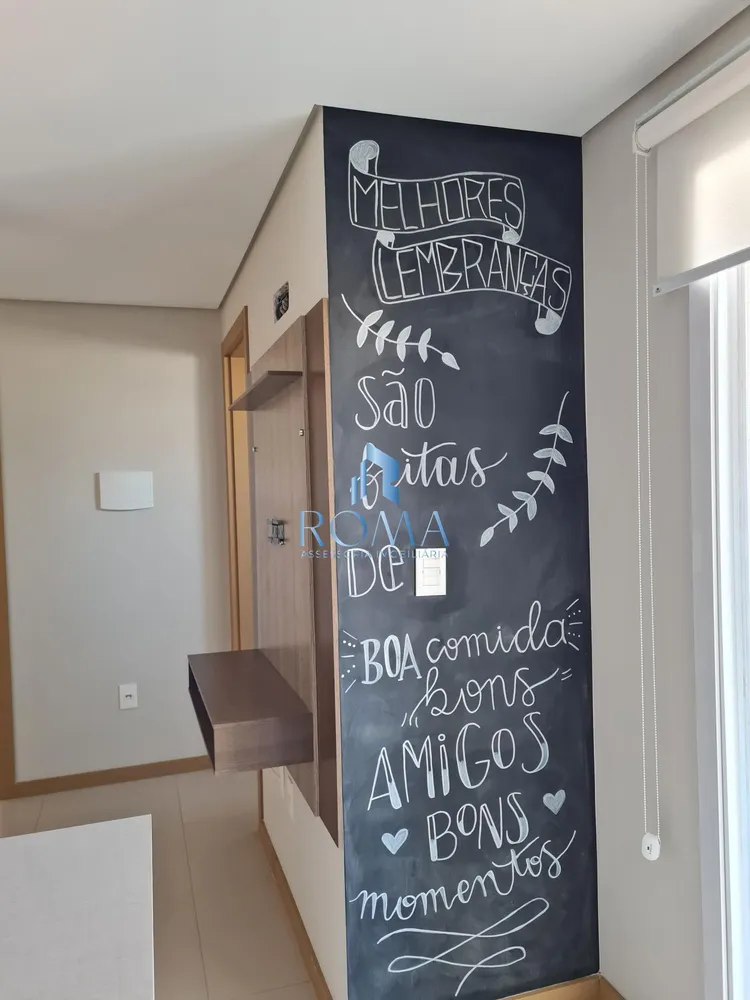 MELHORES
LEMBRANÇAS
SÃO
fEitas
ROMA
ASSESSORIA IMOBILIÁRIA
DE
BOA comida
bons
AMiGOS
BONS
momentos